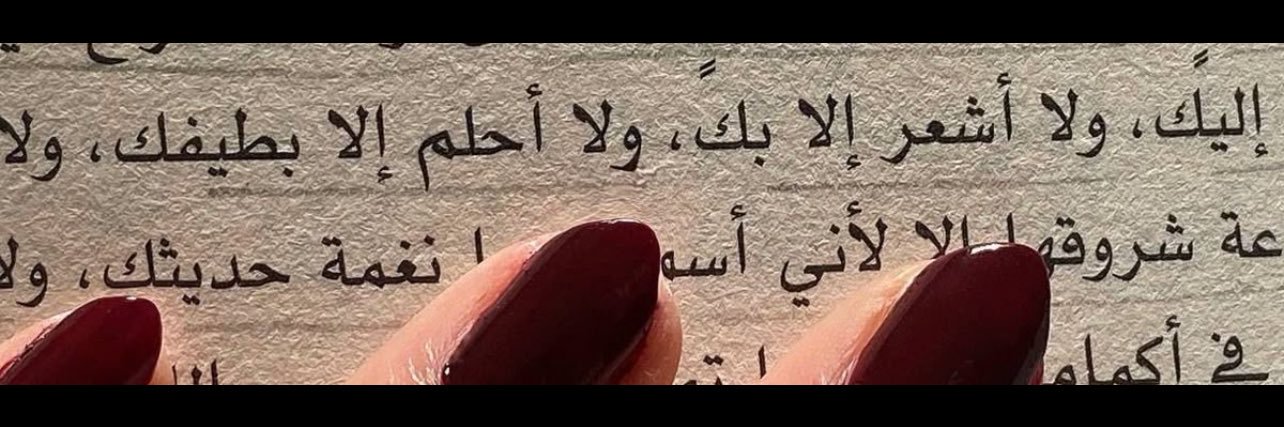 إليك، ولا أشعر إلا بك، ولا أحلم إلا بطيفك، ولا
عة شروقها إلا لأني نغمة حديثك، ولا
في أكمام